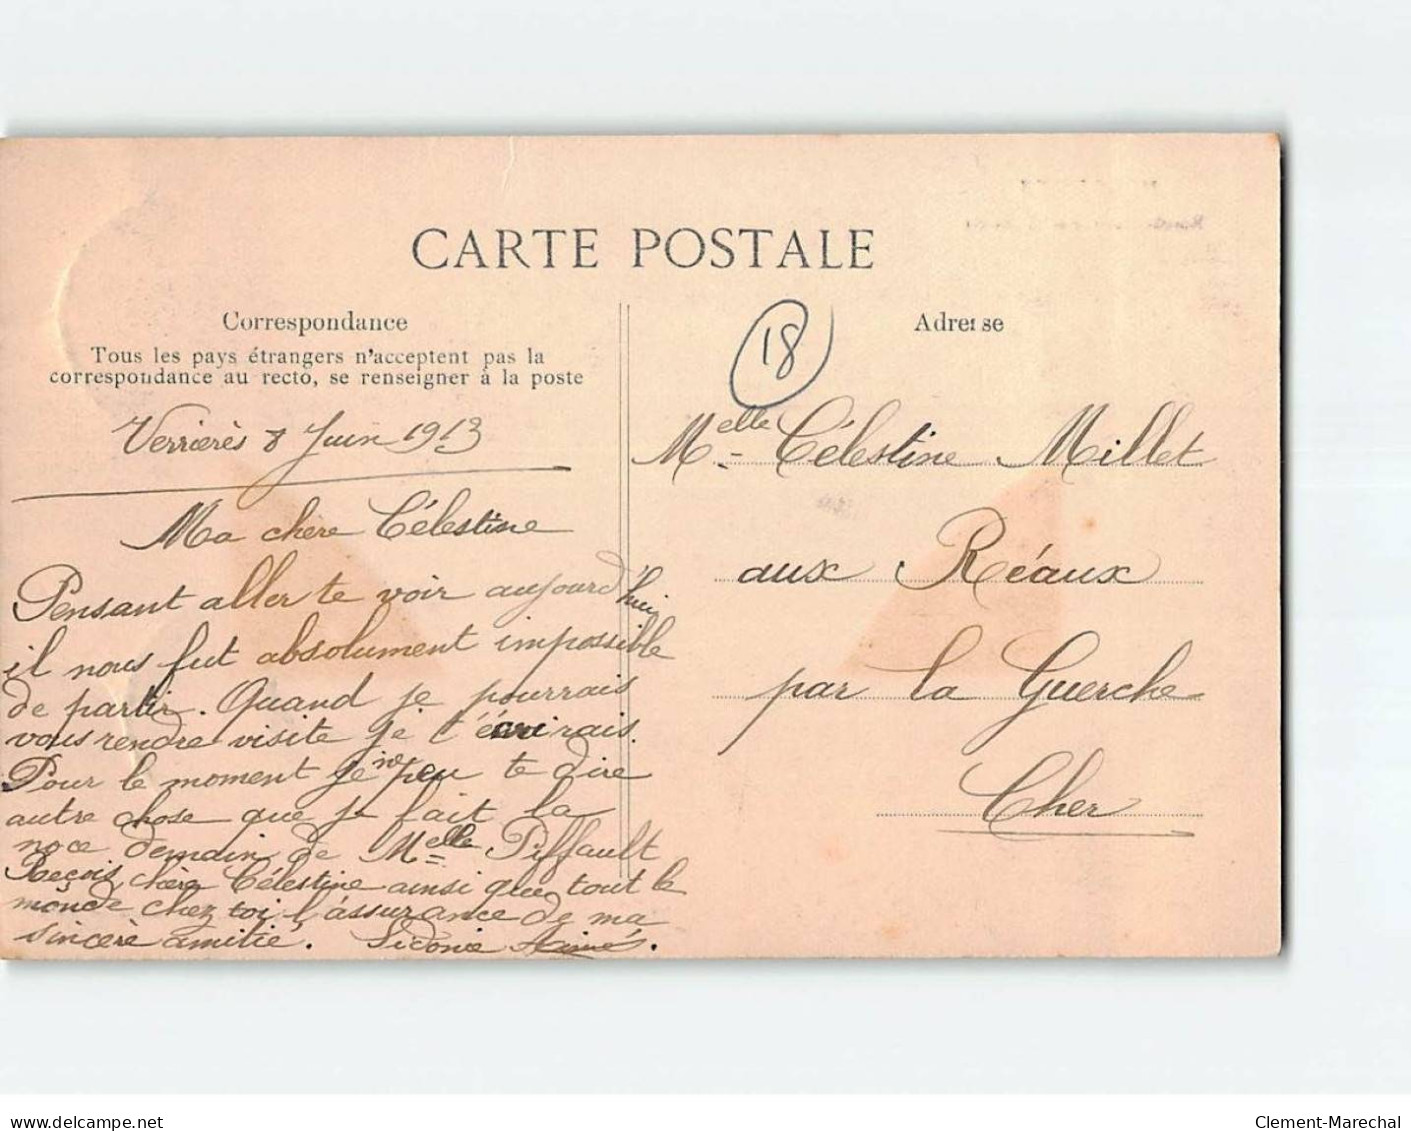 CARTE POSTALE
Correspondance
Tous les pays étrangers n'acceptent pas la
correspondance au recto, se renseigner à la poste
Verrierès 8 Juin 1913
Ma chère Célestine
Pensant aller te voir aujourd'hui
il nous fut absolument impossible
de partir. Quand je pourrais
vous rendre visite je t'écrirais.
Pour le moment je ne peu te dire
autre chose que je fait la
noce demain de Melle Piffault
Reçois chère Célestine ainsi que tout le
monde chez toi l'assurance de ma
sincère amitié. Sidonie
18
Adresse
Melle Célestine Millet
aux Réaux
par la Guerche
Cher
delcampe.net
Clement-Marechal